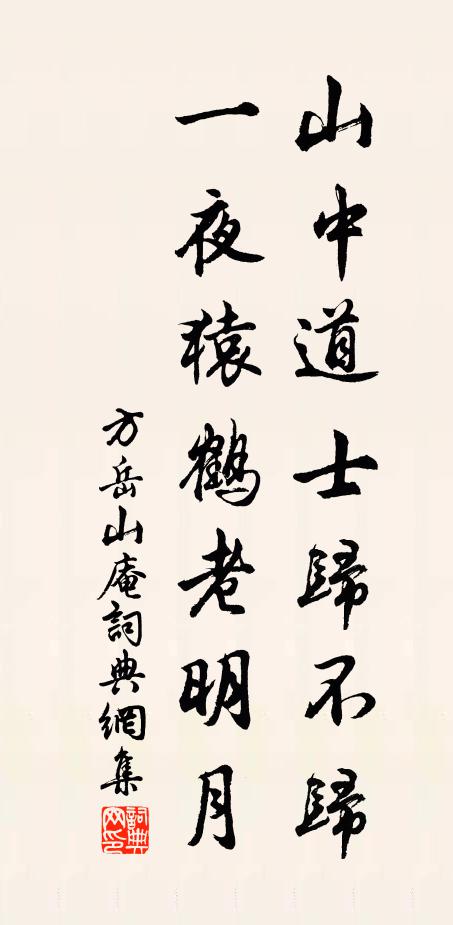 山中道士歸不歸
一夜猿鶴老明月
方岳山庵詞典網集
詞典網印